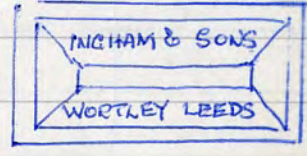 INGHAM & SONS
WORTLEY LEEDS